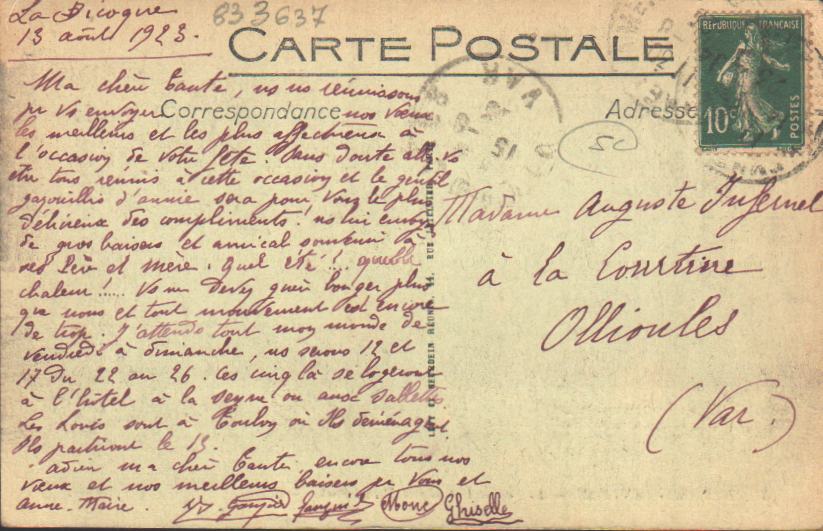 La Bicoque
13 août 1923.
833637
CARTE POSTALE
Correspondance
Adresse
RÉPUBLIQUE FRANÇAISE
10c
POSTES
VAR
50
Ma chère tante, ns ns réunissons
pr vs envoyer nos vœux
les meilleurs et les plus affectueux à
l'occasion de votre fête. Sans doute allez vs
être tous réunis à cette occasion et le gentil
gazouillis d'annie sera pour vous le plus
délicieux des compliments! ns lui envoy
de gros baisers et amical souvenir à
ses Père et Mère. Quel été!!! quelle
chaleur!..... Vs ne devez guère bouger plus
que nous et tout mouvement est encore
de trop. J'attends tout mon monde de
vendredi à dimanche, ns serons 12 et
17 du 22 au 26. Ces cinq là se logeront
à l'hôtel à la Seyne ou aux Sablettes
Les Louis sont à Toulon où ils déménagent
Ils partiront le 15.
adieu ma chère tante, encore tous nos
vœux et nos meilleurs baisers pr Vous et
anne-Marie.
Ghiselle
LEVY ET NEURDEIN RÉUNIS, 44, RUE LETELLIER, PARIS
Madame Auguste
à la Courtine
Ollioules
(Var.)